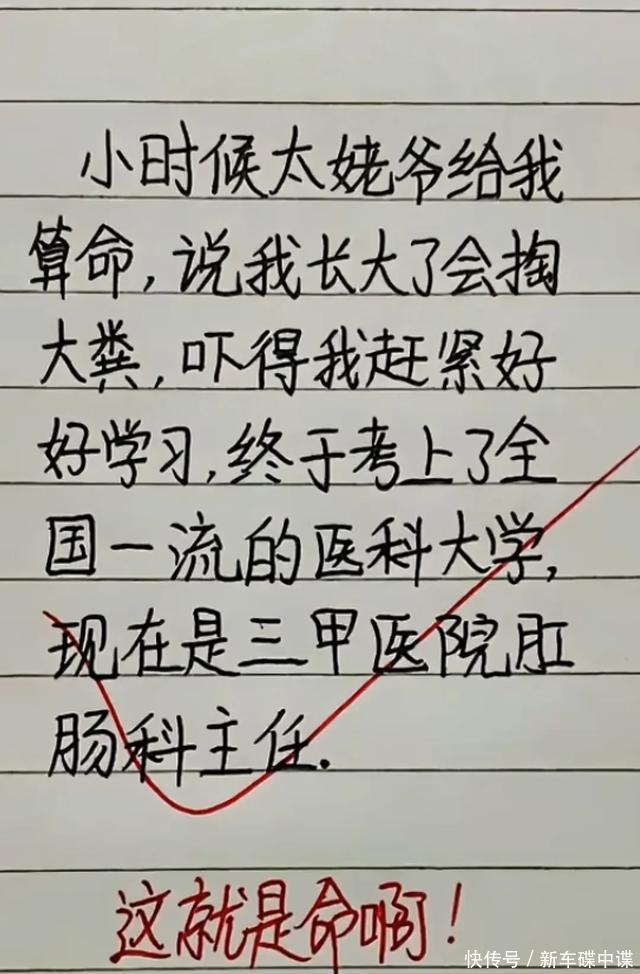 小时候太姥爷给我
算命,说我长大了会掏
大粪,吓得我赶紧好
好学习,终于考上了全
国一流的医科大学,
现在是三甲医院肛
肠科主任.
这就是命啊!
快传号/新车碟中谍